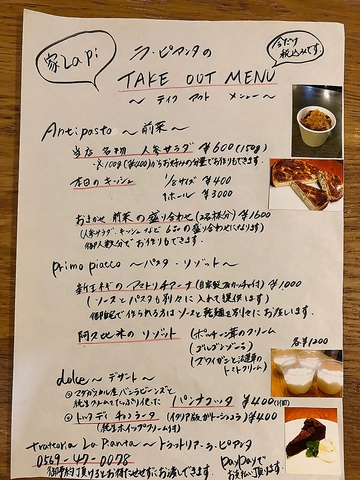 家LaPi
ラ・ピアンタの
TAKE OUT MENU
～ テイク アウト メニュー ～
今だけ
税込みです。
Antipasto ～ 前菜 ～
当店 名物 人参サラダ ¥600 (150g)
※100g (¥400)からお好みの分量でお作りできます。
本日のキッシュ 1/8サイズ ¥400
1ホール ¥3000
おまかせ 前菜の盛り合わせ (2名様分) ¥1600
(人参サラダ、キッシュなど 6品の盛り合わせになります)
御人数分でお作りもできます。
primo piatto ～パスタ・リゾット～
新玉ねぎのアマトリチアーナ ¥1,000
(ソースとパスタも別々に入れて提供します)
御自宅で作られる方はソースと乾麺を別々にお渡しします。
阿久比米のリゾット (ポルチーニ茸のクリーム)
(ゴルゴンゾーラ) 各¥1200
(ズワイガニと淡雪のトマトクリーム)
dolce ～ デザート ～
マダガスカル産バニラビーンズと
純生クリームをたっぷり使った パンナコッタ ¥400 (1個)
トルタ ディ チョコラータ (イタリア版ガトーショコラ) ¥400
(純生ホイップクリーム付)
trattoria La Pianta ～ トラットリア・ラ・ピアンタ
0569-47-0078
御予約頂けるとお待たせせずにお渡しできます。
PayPayで
お支払い頂けます。